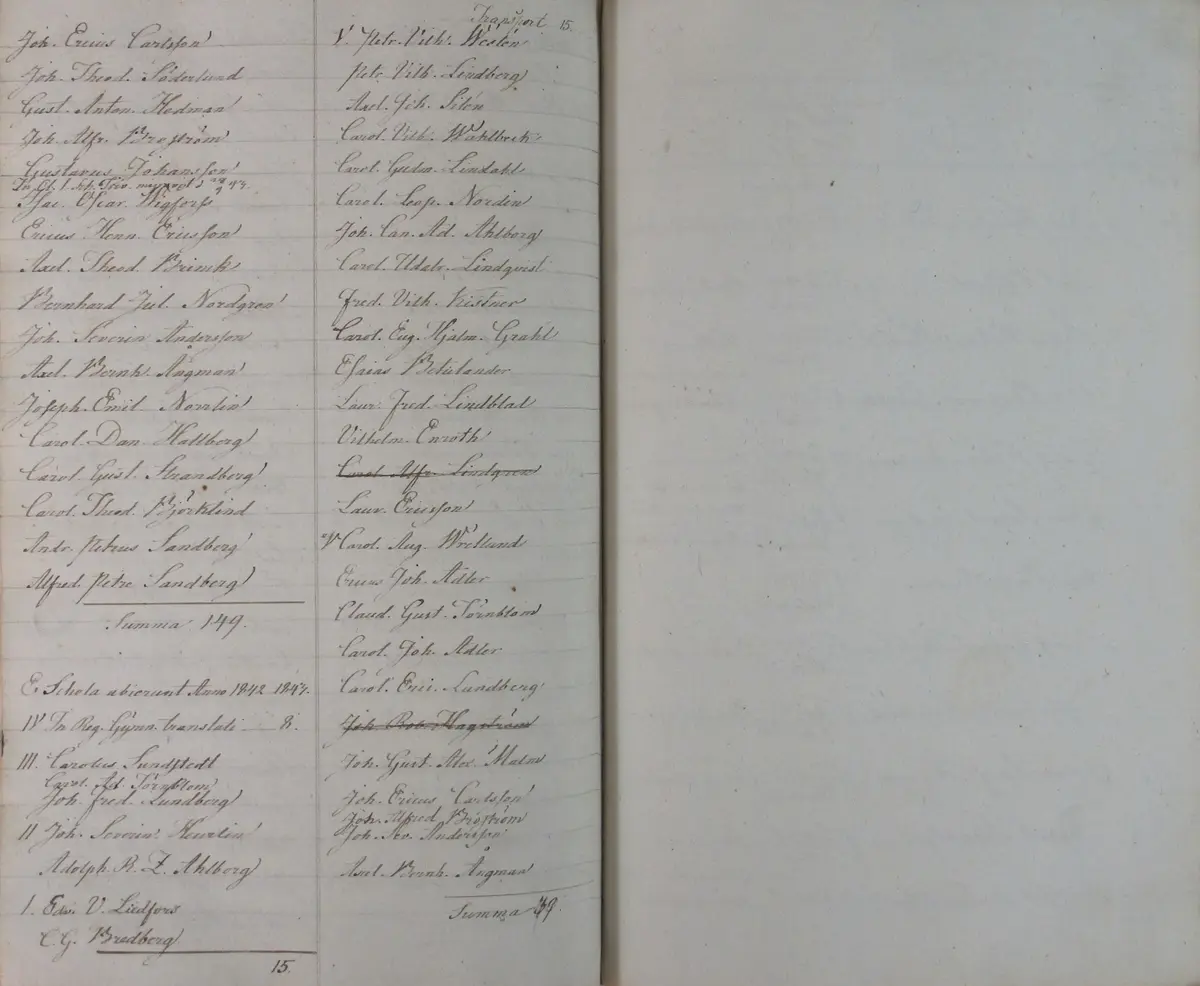 Joh. Ericus Carlsson
Joh. Theod. Söderlund
Gust. Anton. Hedman
Joh. Alfr. Broström
Gustavus Johansson
In Cl. 1. Sch. Triv.
Isac. Oscar. Wigforss
Ericus Henn. Ericsson
Axel. Theod. Brink
Bernhard Jul. Nordgren
Joh. Severin Andersson
Axel. Bernh. Ångman
Joseph. Emil Norrlin
Carol. Dan. Hallberg
Carol. Gust. Strandberg
Carol. Theod. Björklind
Andr. Petrus Sandberg
Alfred. Petre Sandberg
Summa 149.
E Schola abierunt Anno 1842 1843.
IV In Reg. Gymn. translati 8.
III. Carolus Sundstedt
Carol. Ad. Törnblom
Joh. Fred. Lundberg
II Joh. Severin
Adolph. R. Z. Ahlborg
I. Edv. V. Liedfors
C. G. Bredberg
15.
Transport 15.
Petr. Vilh. Westén
Petr. Vilh. Lindberg
Axel. Joh. Silén
Carol. Vilh. Wahlbeck
Carol. Gudm. Lindahl
Carol. Leop. Nordin
Joh. Can. Ad. Ahlborg
Carol. Udalr. Lindqvist
Fred. Vilh. Kistner
Carol. Eug. Hjalm. Grahl
Esaias Betulander
Laur. Fred. Lindblad
Vilhelm. Enroth
Carol. Alfr. Lindgren
Laur. Ericsson
Carol. Aug. Wretlund
Ericus Joh. Adler
Claud. Gust. Törnblom
Carol. Joh. Adler
Carol. Eric. Lundberg
Joh. Rob. Hagström
Joh. Gust. Alex. Malm
Joh. Ericus Carlsson
Joh. Alfred Broström
Joh. Sev. Andersson
Axel. Bernh. Ångman
Summa 39.